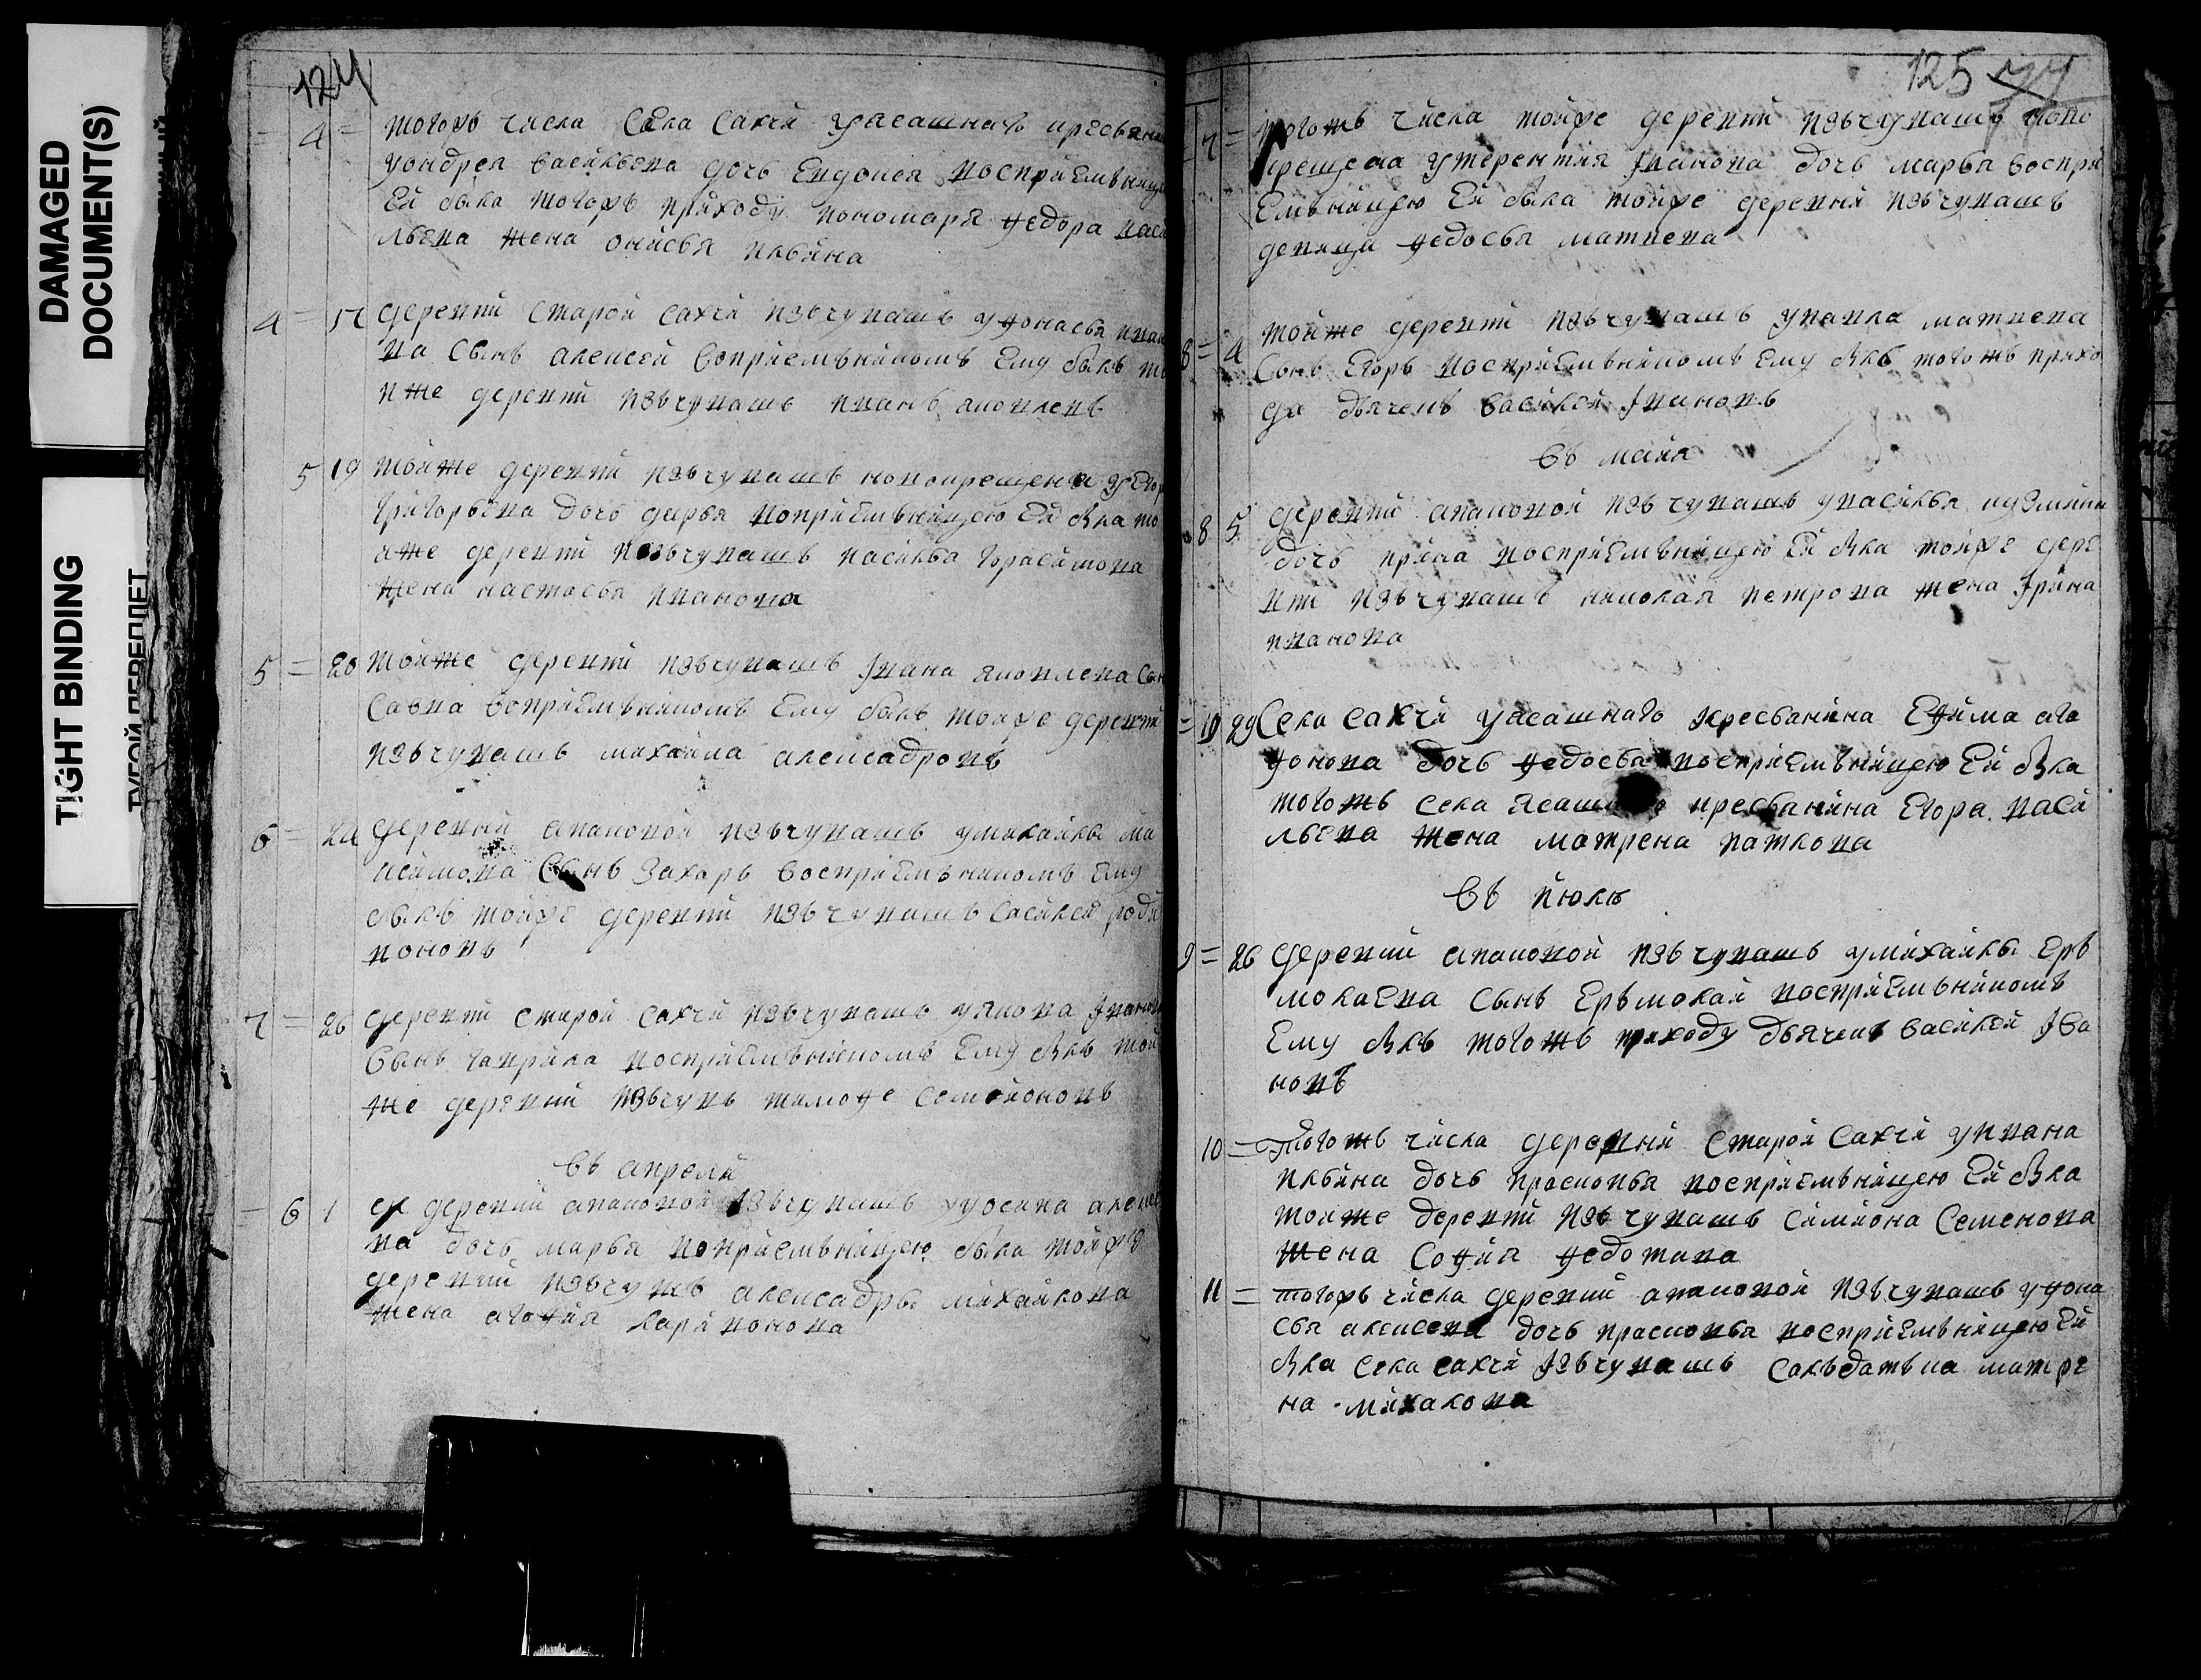 DAMAGED
DOCUMENT(S)
TIGHT BINDING
ТУГОЙ ПЕРЕПЛЕТ
124
4 тогожъ числа села Сахчи уясашнаго кресьяни
уондрея васильева дочь Евдокея восприемьница
Ей была тогожъ приходу пономаря федора васи
льева жена онисья ильина
4 17 деревни старой сахчи изъчувашъ уафонасья ива
на сынъ алексей воприемьникомъ Ему былъ то
иже деревни изъчувашъ иванъ яковлевъ
5 19 тойже деревни изъчувашъ новокрещена у Егор
григорьева дочь дарья воприемьницею Ей была то
иже деревни изъчувашъ василья горасимова
жена настасья иванова
5 20 тойже деревни изъчувашъ Ивана яковлева сын
Савва воприемьникомъ Ему былъ тойже деревни
изъчувашъ михайла алексадровъ
6 24 деревни апаковой изъчувашъ умихайлы ма
ксимова Сынъ Захаръ восприемьникомъ Ему
былъ тойже деревни изъчувашъ василей роди
вововъ
7 26 деревни старой сахчи изъчувашъ уякова Ивано
сынъ гаврила восприемьникомъ Ему былъ той
же деревни изъчувъ тимофе семионовъ
въ апрели
6 1 деревни апаковой изъчувашъ уосипа алексе
ва дочь марья воприемьницею была тойже
деревни изъчувшъ алексадры михайлова
жена агафия ларивонова
125 77
7 тогожъ числа тойже деревни изъчувашъ ново
крещена утерентия Иванова дочь марья воспри
емьницею Ей была тойже деревни изъчувашъ
девица федосья матвева
8 4 тойже деревни изъчувашъ упавла матвева
сынъ Егоръ восприемьникомъ Ему былъ тогожъ прихо
да дьячекъ василей Ивановъ
въ маия
8 5 деревни апаковой изъчувашъ увасилья кузмина
дочь ирина восприемьницею Ей была тойже дере
вни изъчувашъ николая петрова жена Ирина
иванова
29 Села сахчи уясашнаго кресьянина Ефима ага
фонова дочь федосья восприемьницею Ей была
тогожъ села ясашного кресьянина Егора васи
льева жена матрена павлова
въ июль
9 26 деревни апаковой изъчувашъ умихайлы Ерь
молаева сынъ Ерьмолай восприемьникомъ
Ему былъ тогожъ приходу дьячекъ василей Ива
новъ
10 Тогожъ числа деревни старой сахчи уивана
ильина дочь прасковья восприемьницею Ей была
тойже деревни изъчувашъ симиона семенова
жена софия федотова
11 тогожъ числа деревни апаковой изъчувашъ уафона
сья алексева дочь прасковья восприемьницею Ей
была села сахчи Изъчувашъ салъдатъка матре
на михалова